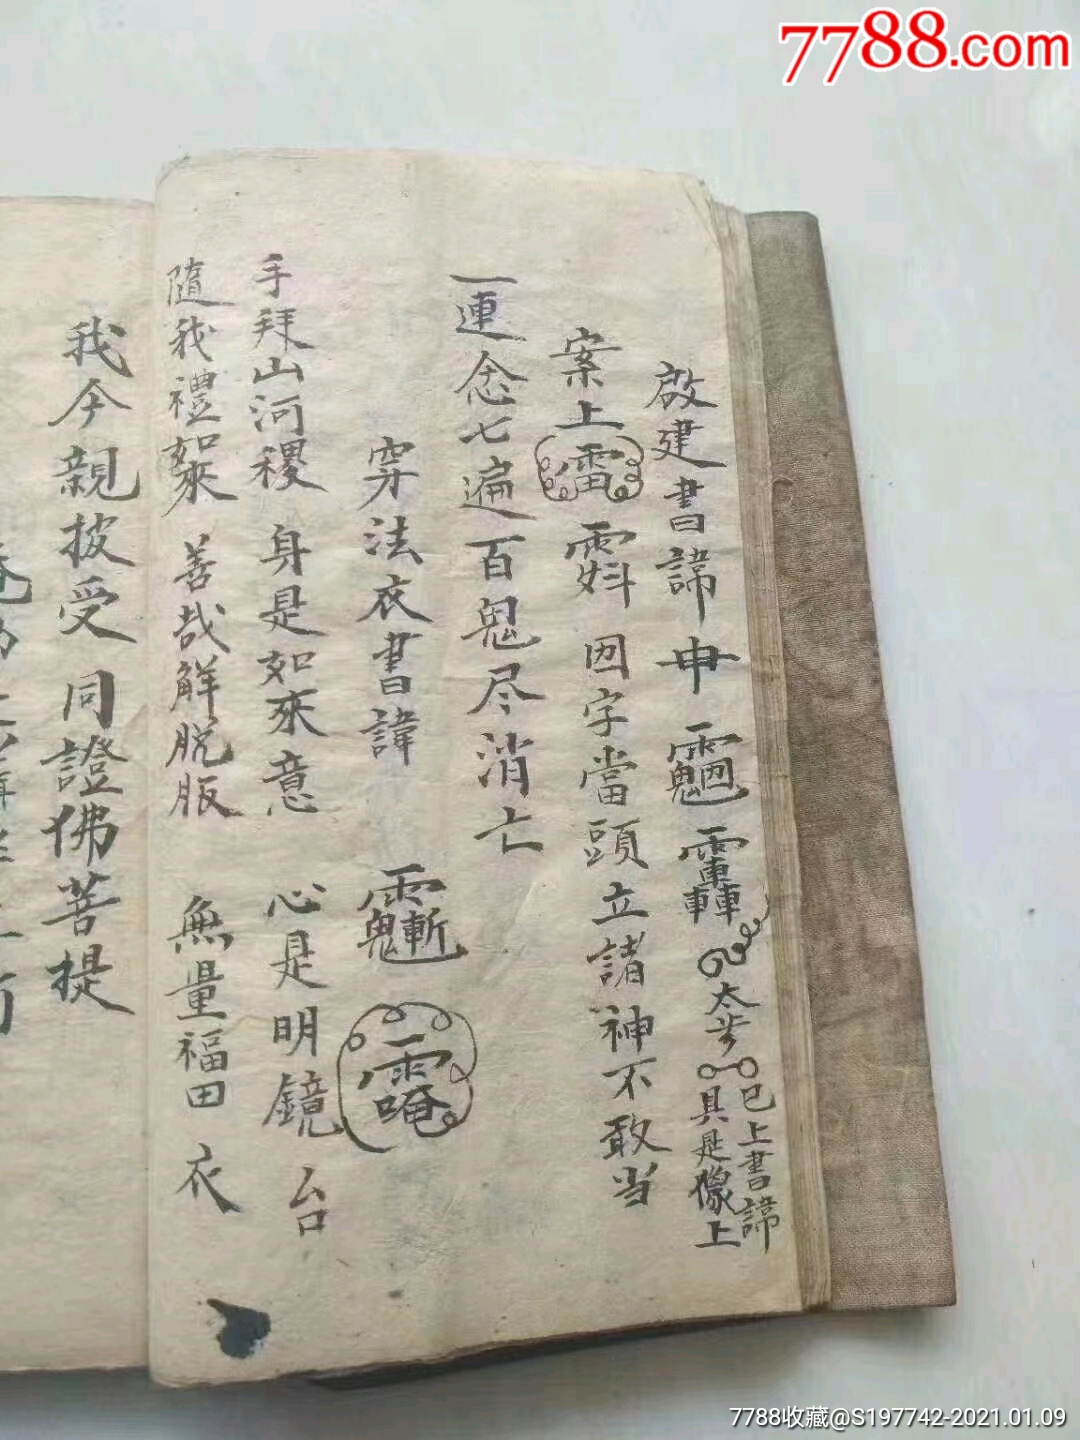 7788.com
啟建書諱申
太歩
巳上書諱
具是像上
案上雷 囡字當頭立諸神不敢当
一連念七遍百鬼尽消亡
穿法衣書諱
手拜山河稷 身是如來意 心是明鏡台
隨我禮如來 善哉解脱服 無量福田衣
我今親披受同證佛菩提
7788收藏@S197742-2021.01.09